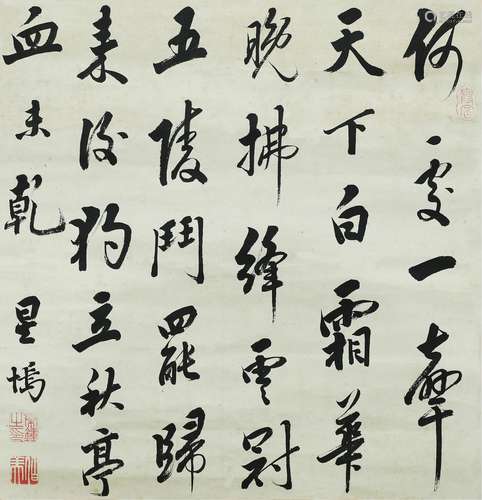 何處一聲
天下白霜華
晚拂絳雲冠
五陵鬥罷歸
來後獨立秋亭
血未乾
星塢